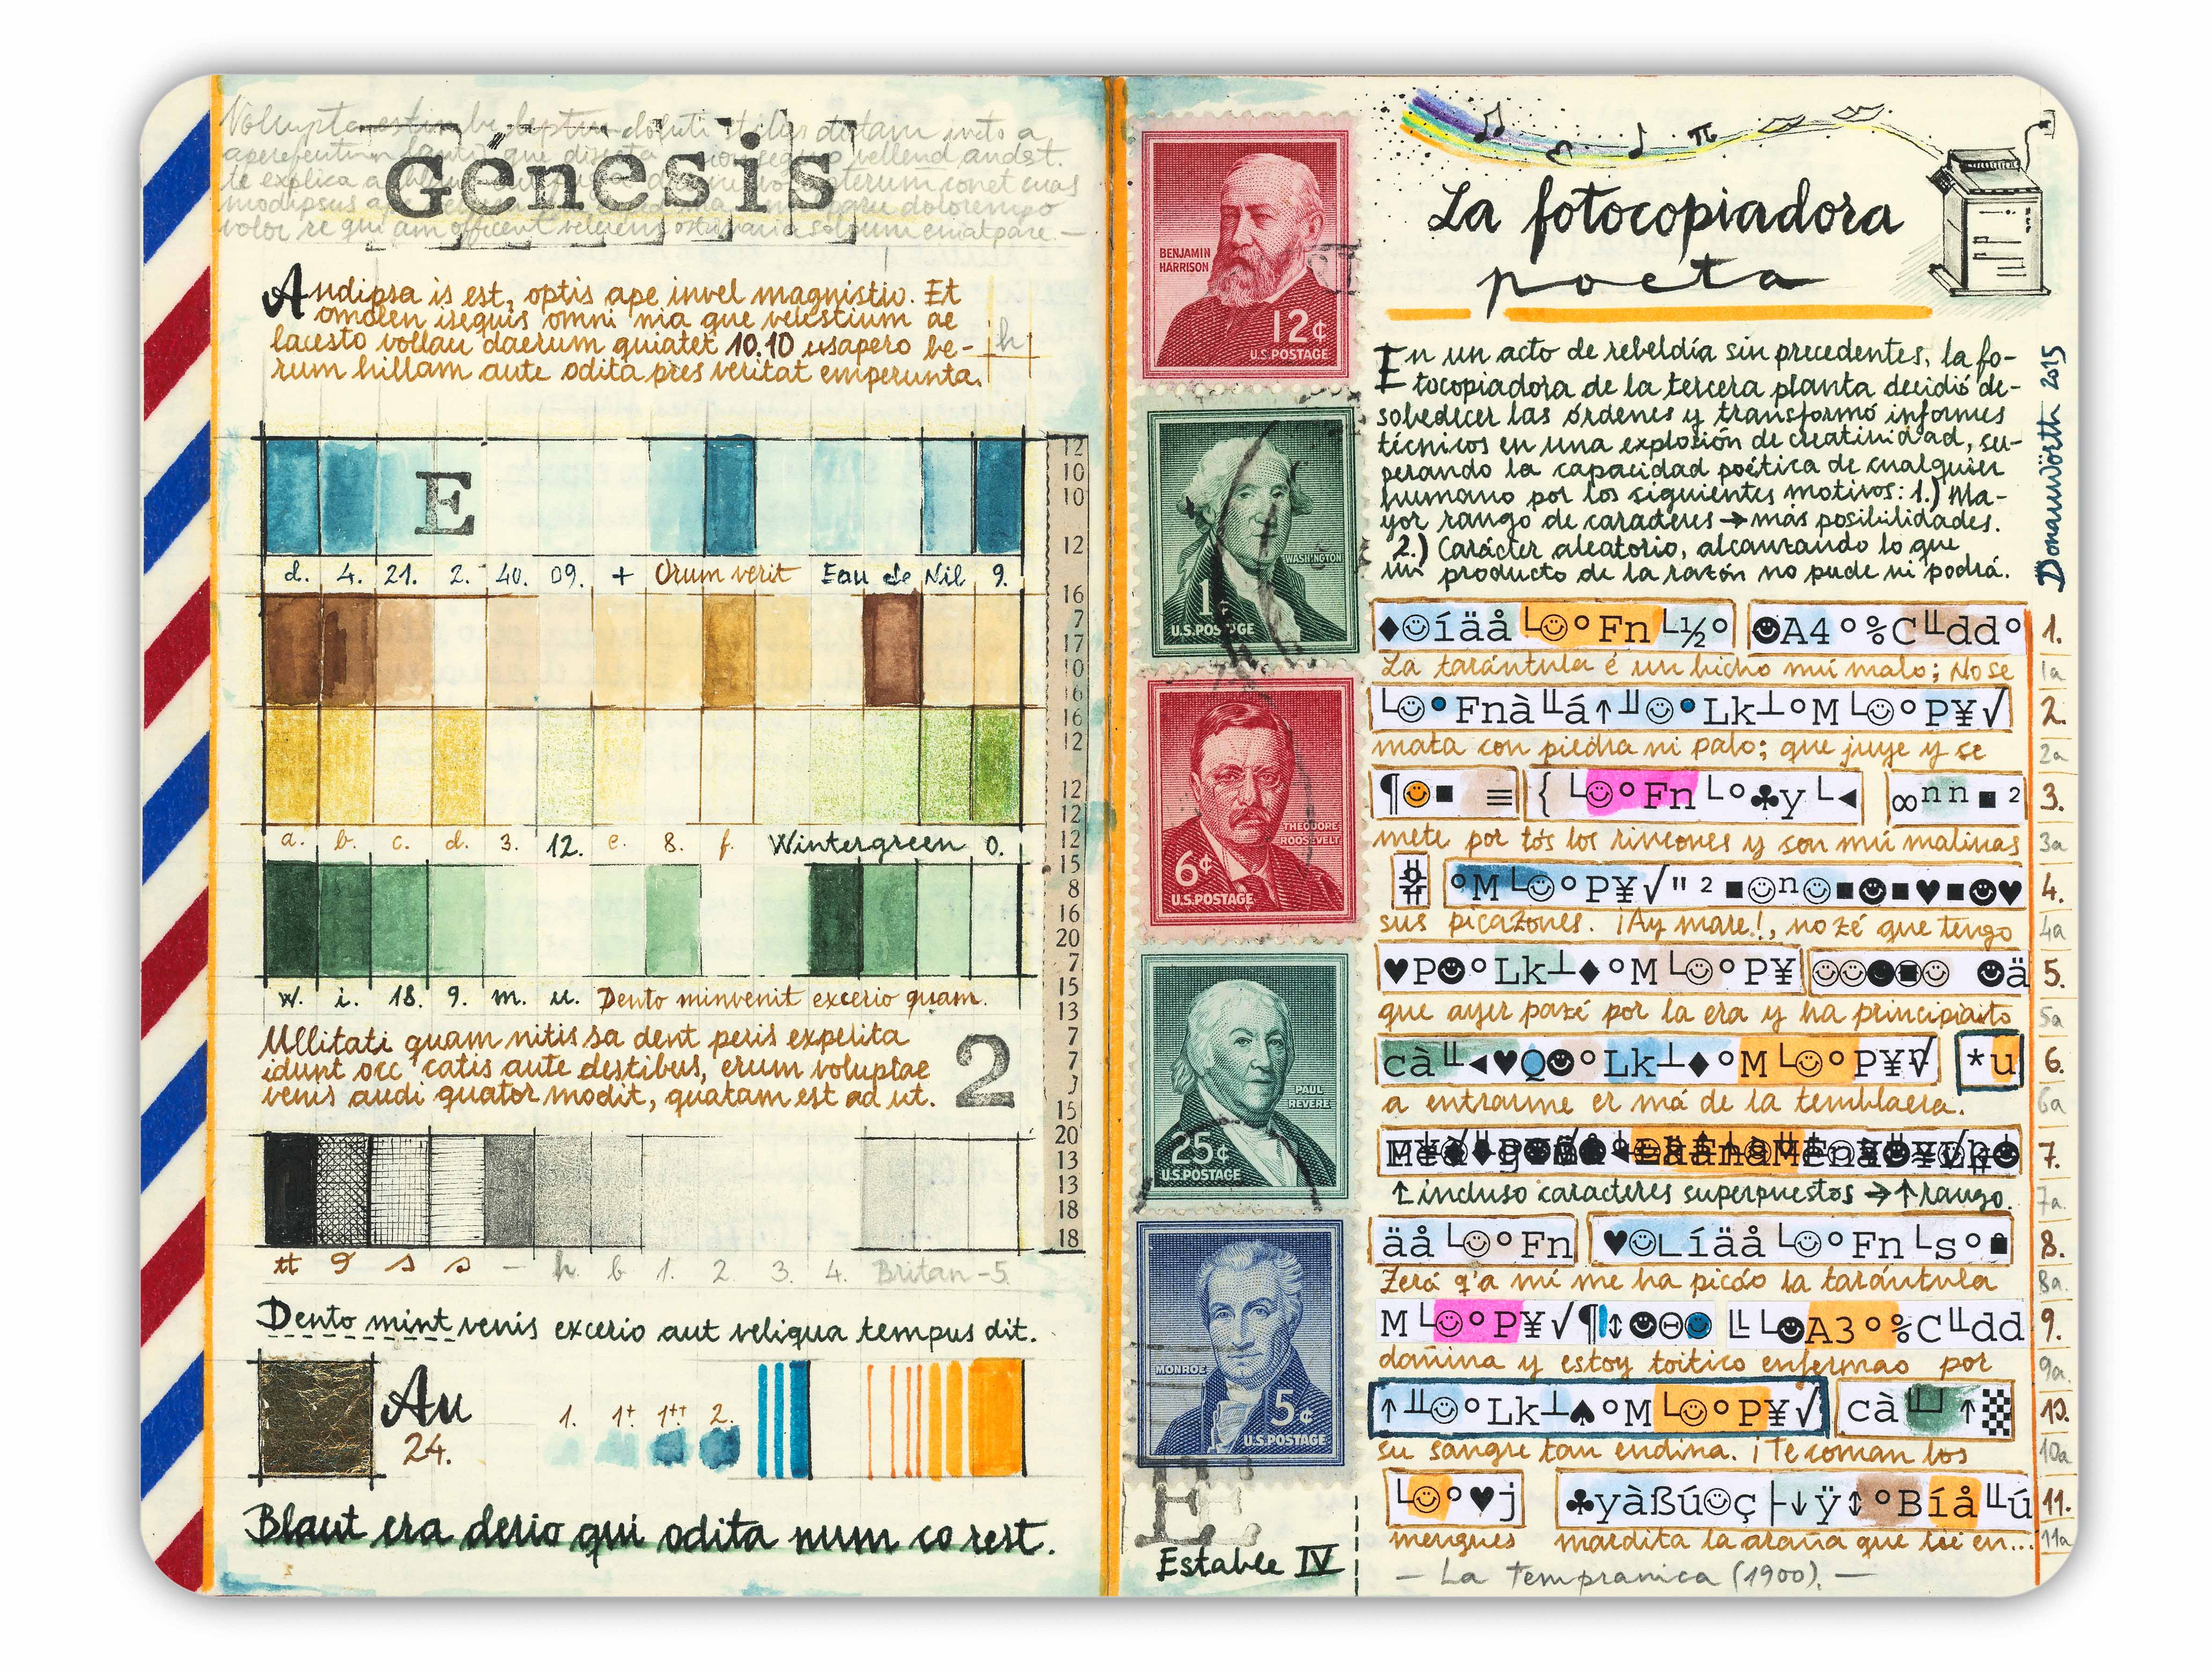 Génesis
Andipsa is est, optis ape invel magnistio. Et
omolen isequis omni nia que velestium ae
lacesto vollau daerum quiatet 10.10 usapero be-
rum hillam aute odita pres veritat emperunta.
h
E
d. 4. 21. 2. 40. 09. + Orum verit Eau de Nil 9.
a. b. c. d. 3. 12. e. 8. f. Wintergreen 0.
w. i. 18. 9. m. u. Dento minvenit excerio quam.
Ullitati quam nitis sa dent peris expelita
idunt occ catis aute destibus, erum voluptae
venis audi quator modit, quatam est ad ut.
2
h. b 1. 2. 3. 4. Britan-5.
Dento mint venis excerio aut veliqua tempus dit.
Au
24.
1. 1+ 1++ 2.
Blaut era derio qui odita num co rest.
12
10
10
12
16
7
17
10
16
16
12
12
12
12
15
8
16
20
7
15
13
7
7
15
20
13
13
18
18
BENJAMIN
HARRISON
12¢
U.S. POSTAGE
WASHINGTON
1
U.S. POSTAGE
THEODORE
ROOSEVELT
6¢
U.S. POSTAGE
PAUL
REVERE
25¢
U.S. POSTAGE
MONROE
5¢
U.S. POSTAGE
E
Estable IV
π
La fotocopiadora
poeta
En un acto de rebeldía sin precedentes, la fo-
tocopiadora de la tercera planta decidió de-
sobedecer las órdenes y transformó informes
técnicos en una explosión de creatividad, su-
perando la capacidad poética de cualquier
humano por los siguientes motivos: 1.) Ma-
yor rango de caracteres → más posibilidades.
2.) Carácter aleatorio, alcanzando lo que
un producto de la razón no pude ni podrá.
Donauwörth 2015
♦☺íäå└☺°Fn└½° ☻A4°%C╨dd° 1.
La tarántula é un bicho mú malo; No se 1a
└☺•Fnà╨á↑╨☺•Lk┴°M└☺°P¥√ 2.
mata con piedra ni palo; que juye y se 2a
¶☺■ ≡ {└☺°Fn└°♣y└◄ ∞ⁿⁿ■² 3.
mete por tós los rincones y son mú malinas 3a
°M└☺°P¥√"²■☺ⁿ☺■☻■♥■☻♥ 4.
sus picazones. ¡Ay mare!, no zé que tengo 4a
♥P☻°Lk┴♦°M└☺°P¥ ☺☺☻◙☺ ☻ä 5.
que ayer pazé por la era y ha principiaito 5a
cà╨◄♥Q☻°Lk┴♦°M└☺°P¥√ *u 6.
a entrarme er má de la temblaera. 6a
7.
↑ incluso caracteres superpuestos → ↑ rango. 7a.
äå└☺°Fn ♥☺∟íäå└☺°Fn└s° 8.
Zerá q'a mí me ha picáo la tarántula 8a.
M└☺°P¥√¶↕☻Θ☻ ╙└☻A3°%C╨dd 9.
dañina y estoy toitico enfermao por 9a.
↑╨☺°Lk┴♠°M└☺°P¥√ cà╨↑▒ 10.
su sangre tan endina. ¡Te coman los 10a
└☺°♥j ♣yàßú☺ç├↓ÿ↕°Bíå╨ú 11.
mengues mardita la araña que tié en... 11a
— La Tempranica (1900). —